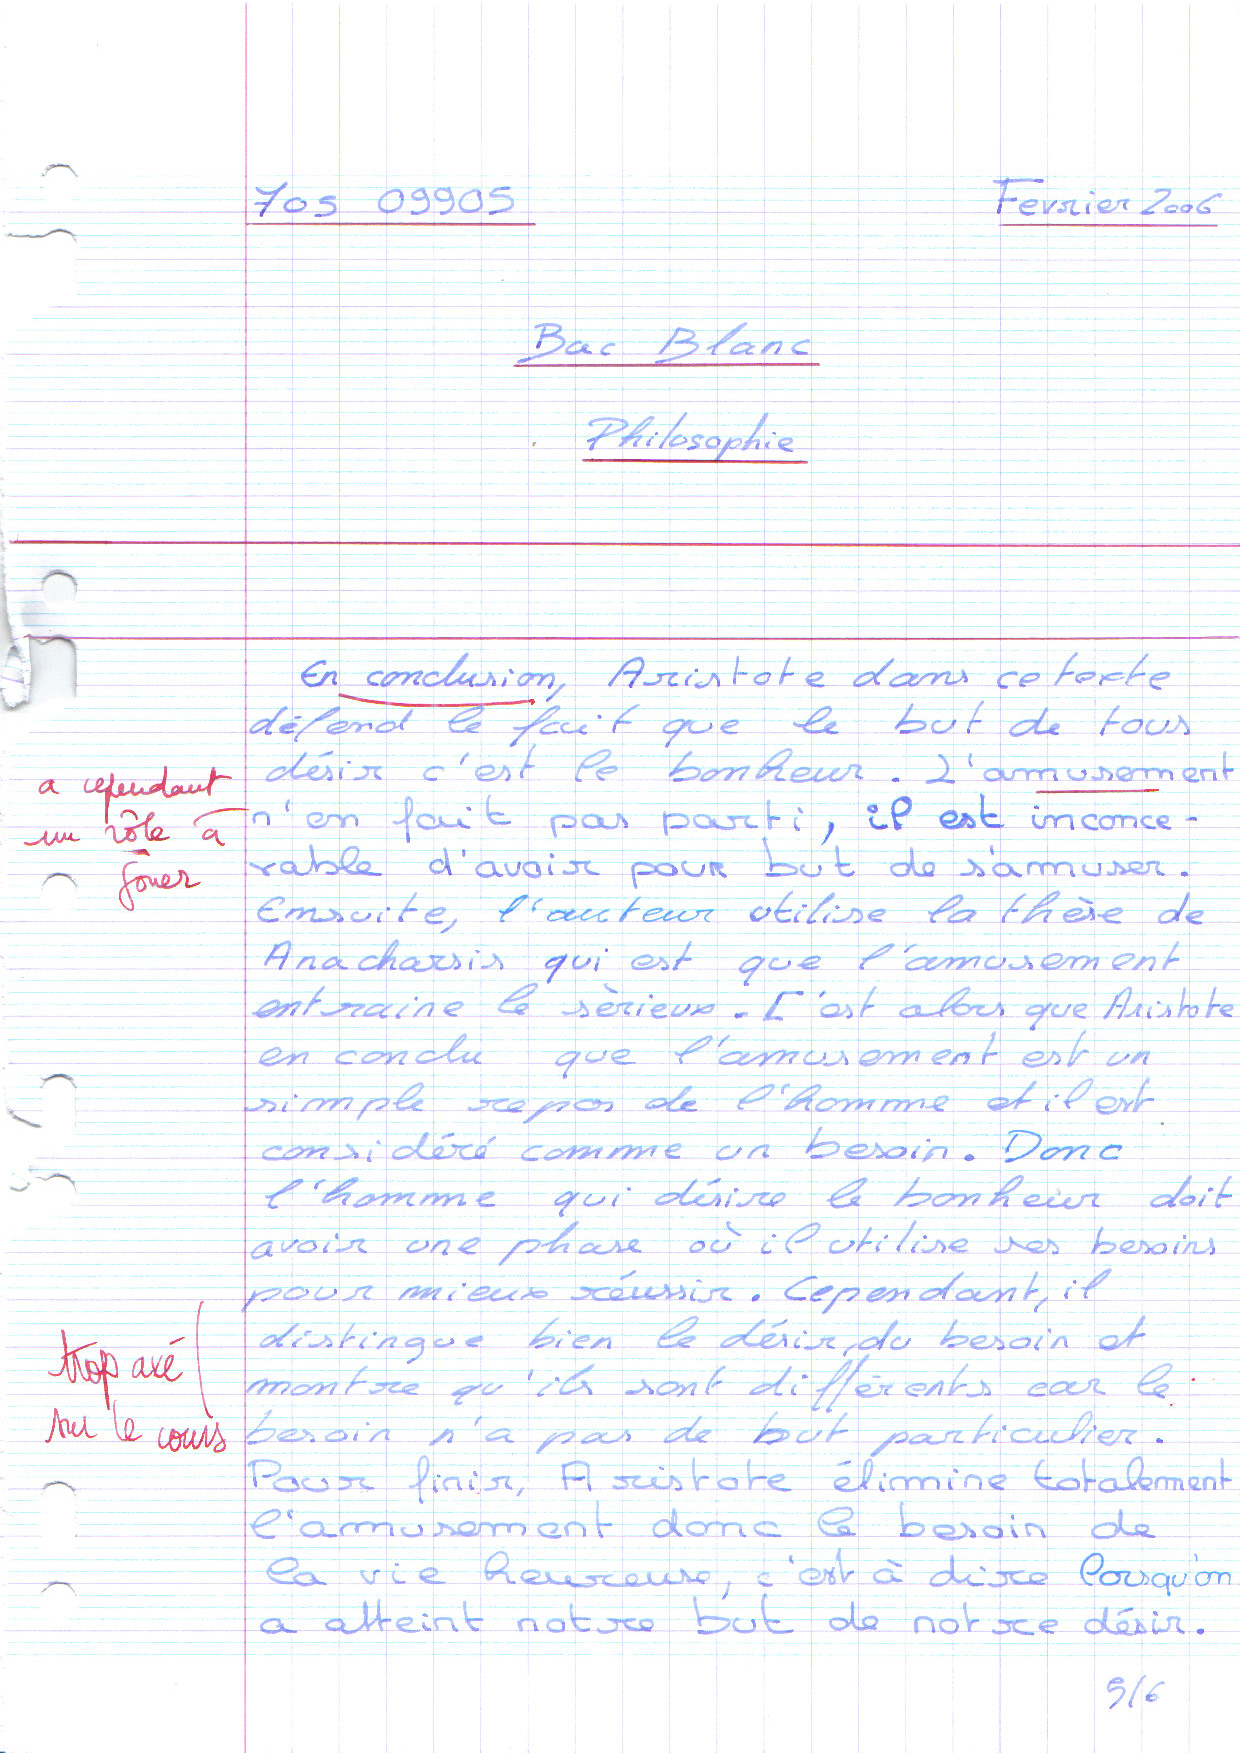 705 09905
Fevrier 2006
Bac Blanc
Philosophie
En conclusion, Aristote dans ce texte
défend le fait que le but de tous
désir c'est le bonheur. L'amusement
a cependant
n'en fait pas parti, il est inconce-
un rôle à
vable d'avoir pour but de s'amuser.
jouer
Ensuite, l'auteur utilise la thèse de
Anacharsis qui est que l'amusement
entraine le sèrieux. C'est alors que Aristote
en conclu que l'amusement est un
simple repos de l'homme et il est
considéré comme un besoin. Donc
l'homme qui désire le bonheur doit
avoir une phase où il utilise ses besoins
pour mieux réussir. Cependant, il
distingue bien le désir, du besoin et
trop axé
montre qu'ils sont différents car le
sur le cours
besoin n'a pas de but particulier.
Pour finir, Aristote élimine totalement
l'amusement donc le besoin de
la vie heureuse, c'est à dire lorsqu'on
a atteint notre but de notre désir.
5/6